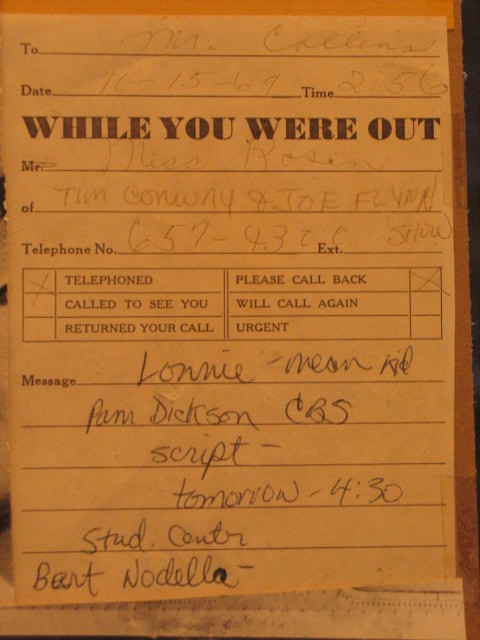 To Mr. Collins
Date 10-15-69 Time 2:56
WHILE YOU WERE OUT
Mr. Miss Rosen
of TIM CONWAY & JOE FLYNN SHOW
Telephone No. 657-4300 Ext.
X TELEPHONED PLEASE CALL BACK X
CALLED TO SEE YOU WILL CALL AGAIN
RETURNED YOUR CALL URGENT
Message Lonnie - mean kid
Pam Dickson CBS
script -
tomorrow - 4:30
Stud. Center
Bert Nodella -